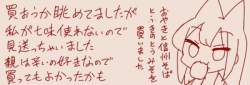 買おうか眺めてましたが
私が七味使わないので
見送っちゃいました
親は辛いの好きなので
買ってもよかったかも
おやきと信州そば
とうきのとうみそを
買いました